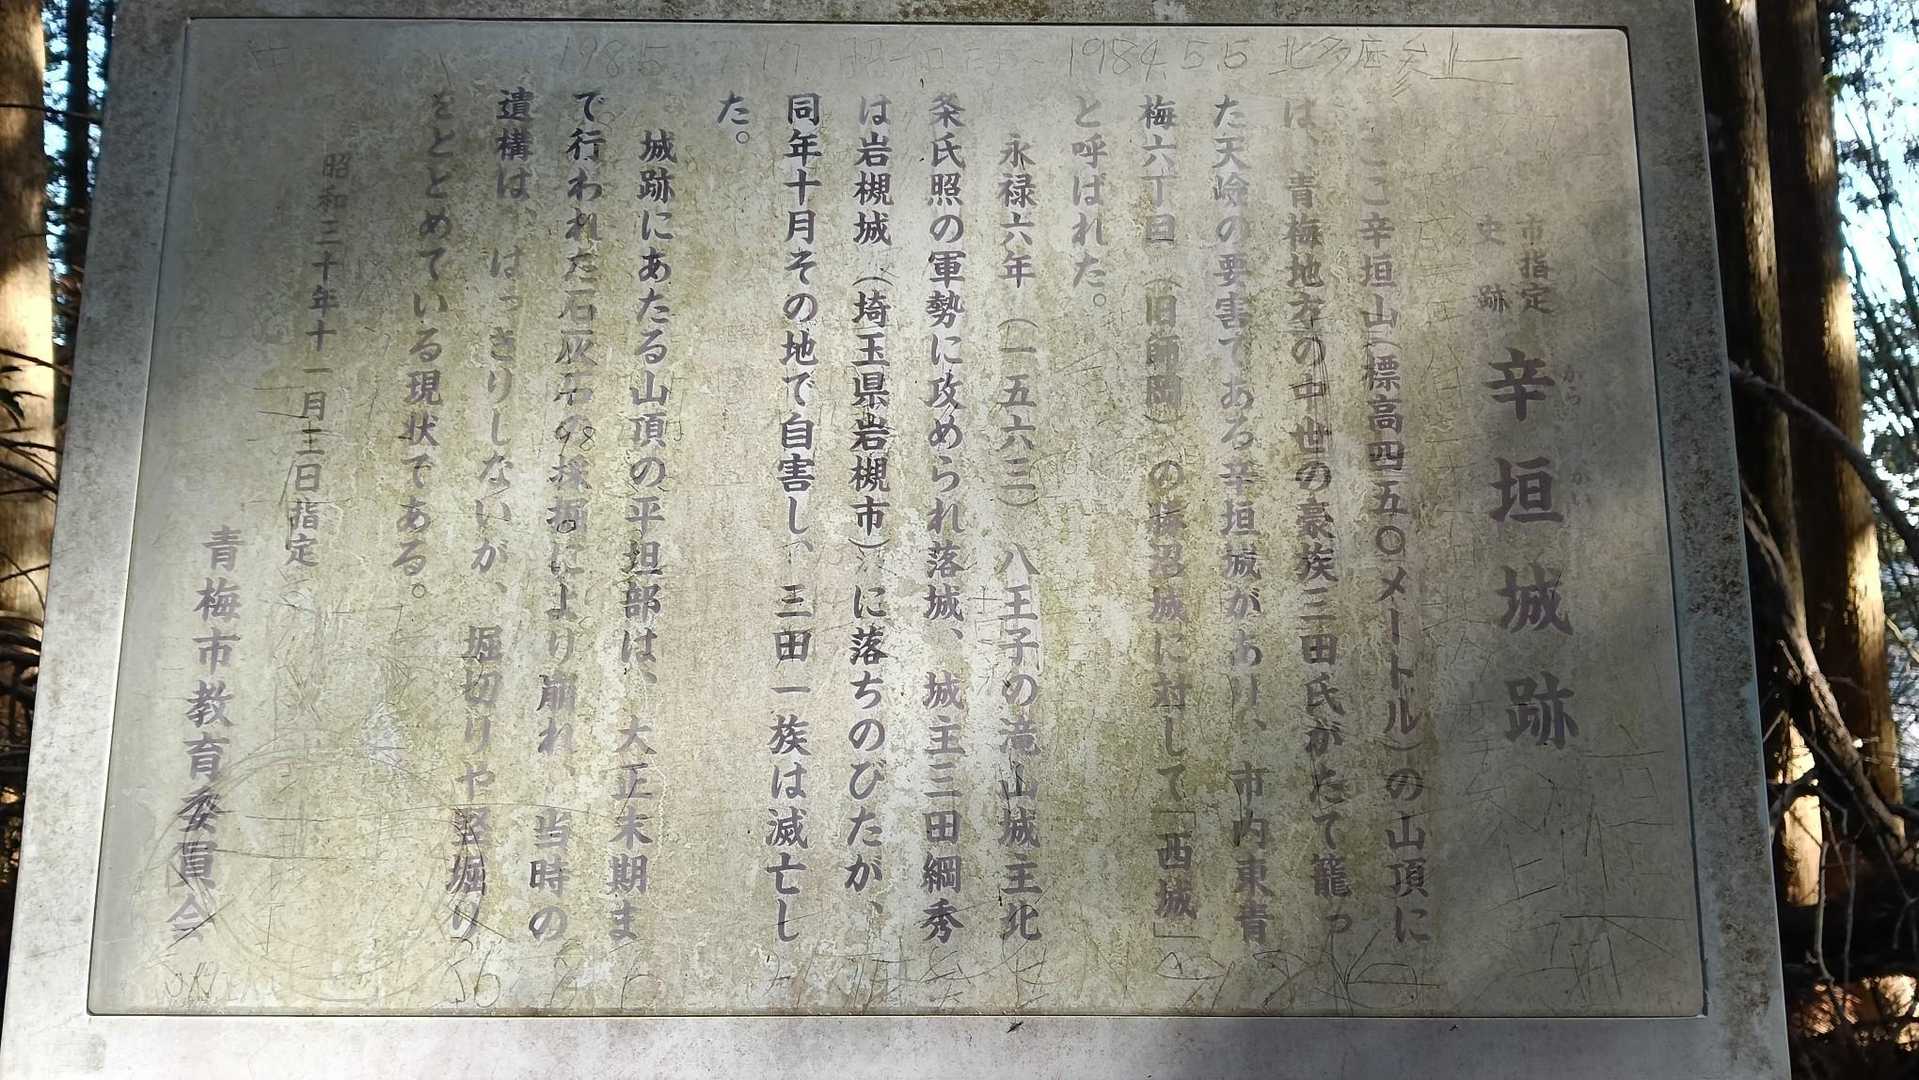 市指定
史跡
辛垣城跡
ここ辛垣山(標高四五〇メートル)の山頂に
は、青梅地方の中世の豪族三田氏がたて籠っ
た天嶮の要害である辛垣城があり、市内東青
梅六丁目(旧師岡)の勝沼城に対して「西城」
と呼ばれた。
永禄六年(一五六三)八王子の滝山城主北
条氏照の軍勢に攻められ落城、城主三田綱秀
は岩槻城(埼玉県岩槻市)に落ちのびたが、
同年十月その地で自害し、三田一族は滅亡し
た。
城跡にあたる山頂の平坦部は、大正末期ま
で行われた石灰石の採掘により崩れ、当時の
遺構は、はっきりしないが、堀切りや竪堀り
をとどめている現状である。
昭和三十年十一月三日指定
青梅市教育委員会
1984.5.5